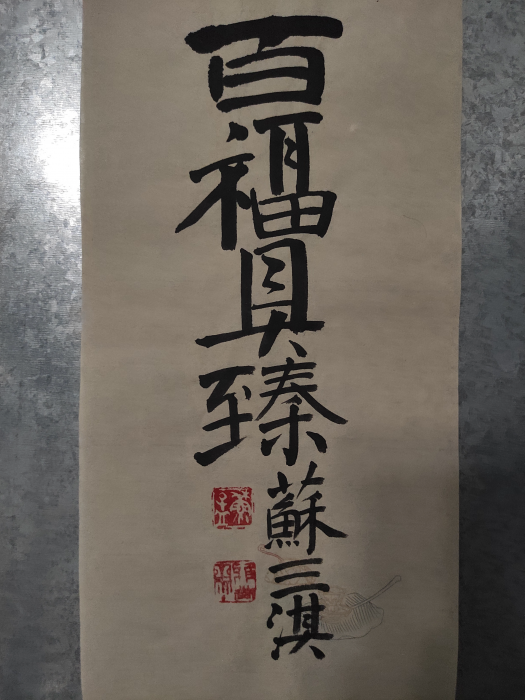 百福具臻
蘇三淇